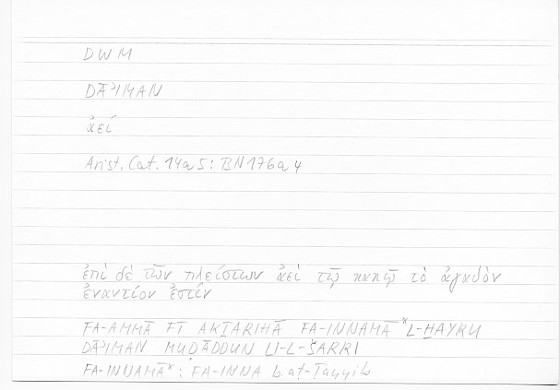 DWM
DĀʾIMAN
ἀεί
Arist. Cat. 14a5: BN176a4
ἐπὶ δὲ τῶν πλείστων ἀεὶ τῷ κακῷ τὸ ἀγαθὸν
ἐναντίον ἐστίν
FA-AMMĀ FĪ AKṮARIHĀ FA-INNAMĀ *L-ḪAYRU
DĀʾIMAN MUḌĀDDUN LI-L-ŠARRI
FA-INNAMĀ*: FA-INNA b. aṭ-Ṭayyib